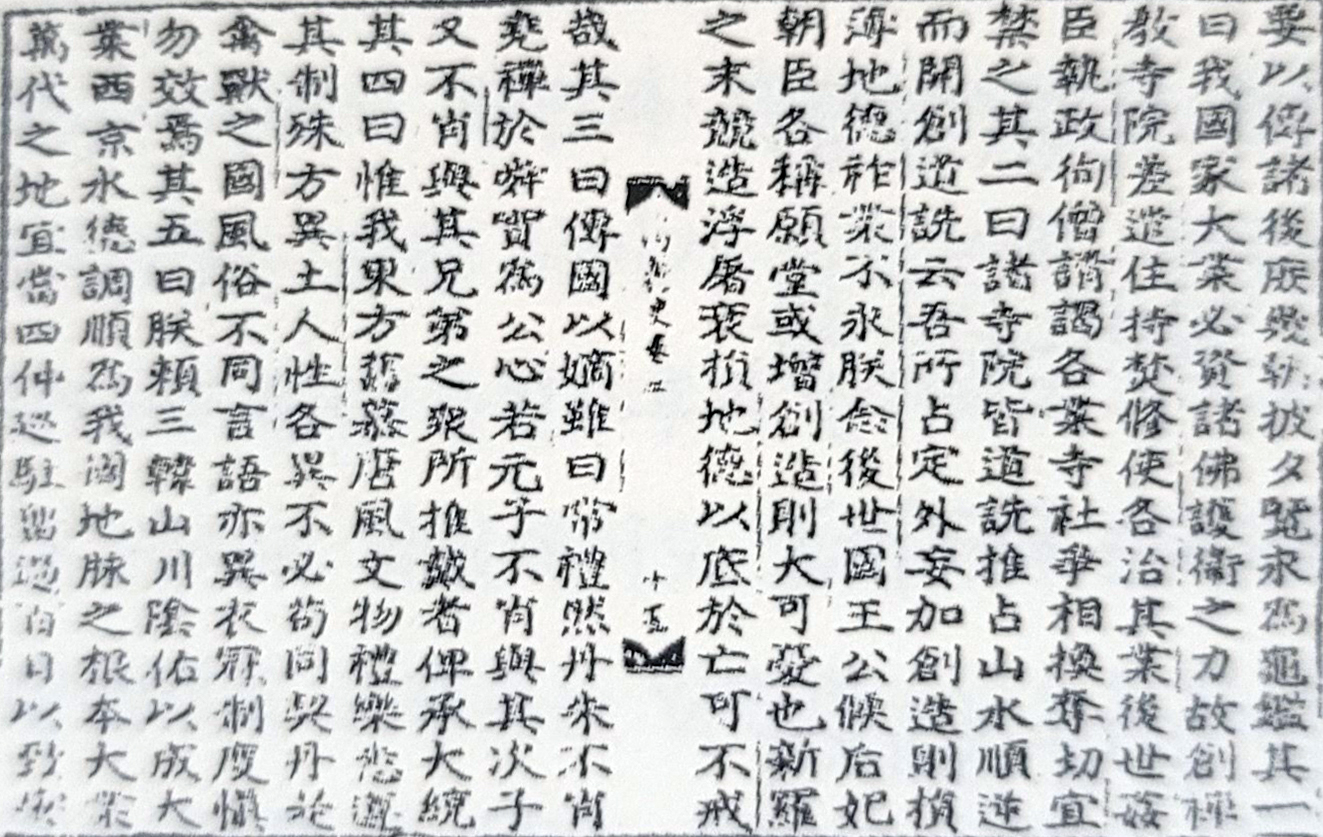 要以傳諸後庶幾朝披夕覽永爲龜鑑其一
曰我國家大業必資諸佛護衛之力故創禪
敎寺院差遣住持焚修使各治其業後世姦
臣執政徇僧請謁各業寺社爭相換奪切宜
禁之其二曰諸寺院皆道詵推占山水順逆
而開創道詵云吾所占定外妄加創造則損
薄地德祚業不永朕念後世國王公侯后妃
朝臣各稱願堂或增創造則大可憂也新羅
之末競造浮屠衰損地德以底於亡可不戒
史卷二
十五
哉其三曰傳國以嫡雖曰常禮然丹朱不肖
堯禪於舜實爲公心若元子不肖與其次子
又不肖與其兄弟之衆所推戴者俾承大統
其四曰惟我東方舊慕唐風文物禮樂悉遵
其制殊方異土人性各異不必苟同契丹是
禽獸之國風俗不同言語亦異衣冠制度愼
勿效焉其五曰朕賴三韓山川陰佑以成大
業西京水德調順爲我國地脉之根本大業
萬代之地宜當四仲巡駐留過百日以致安